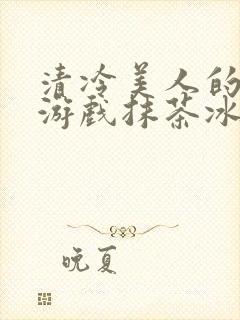 清冷美人的
游戏抹茶冰
晚夏